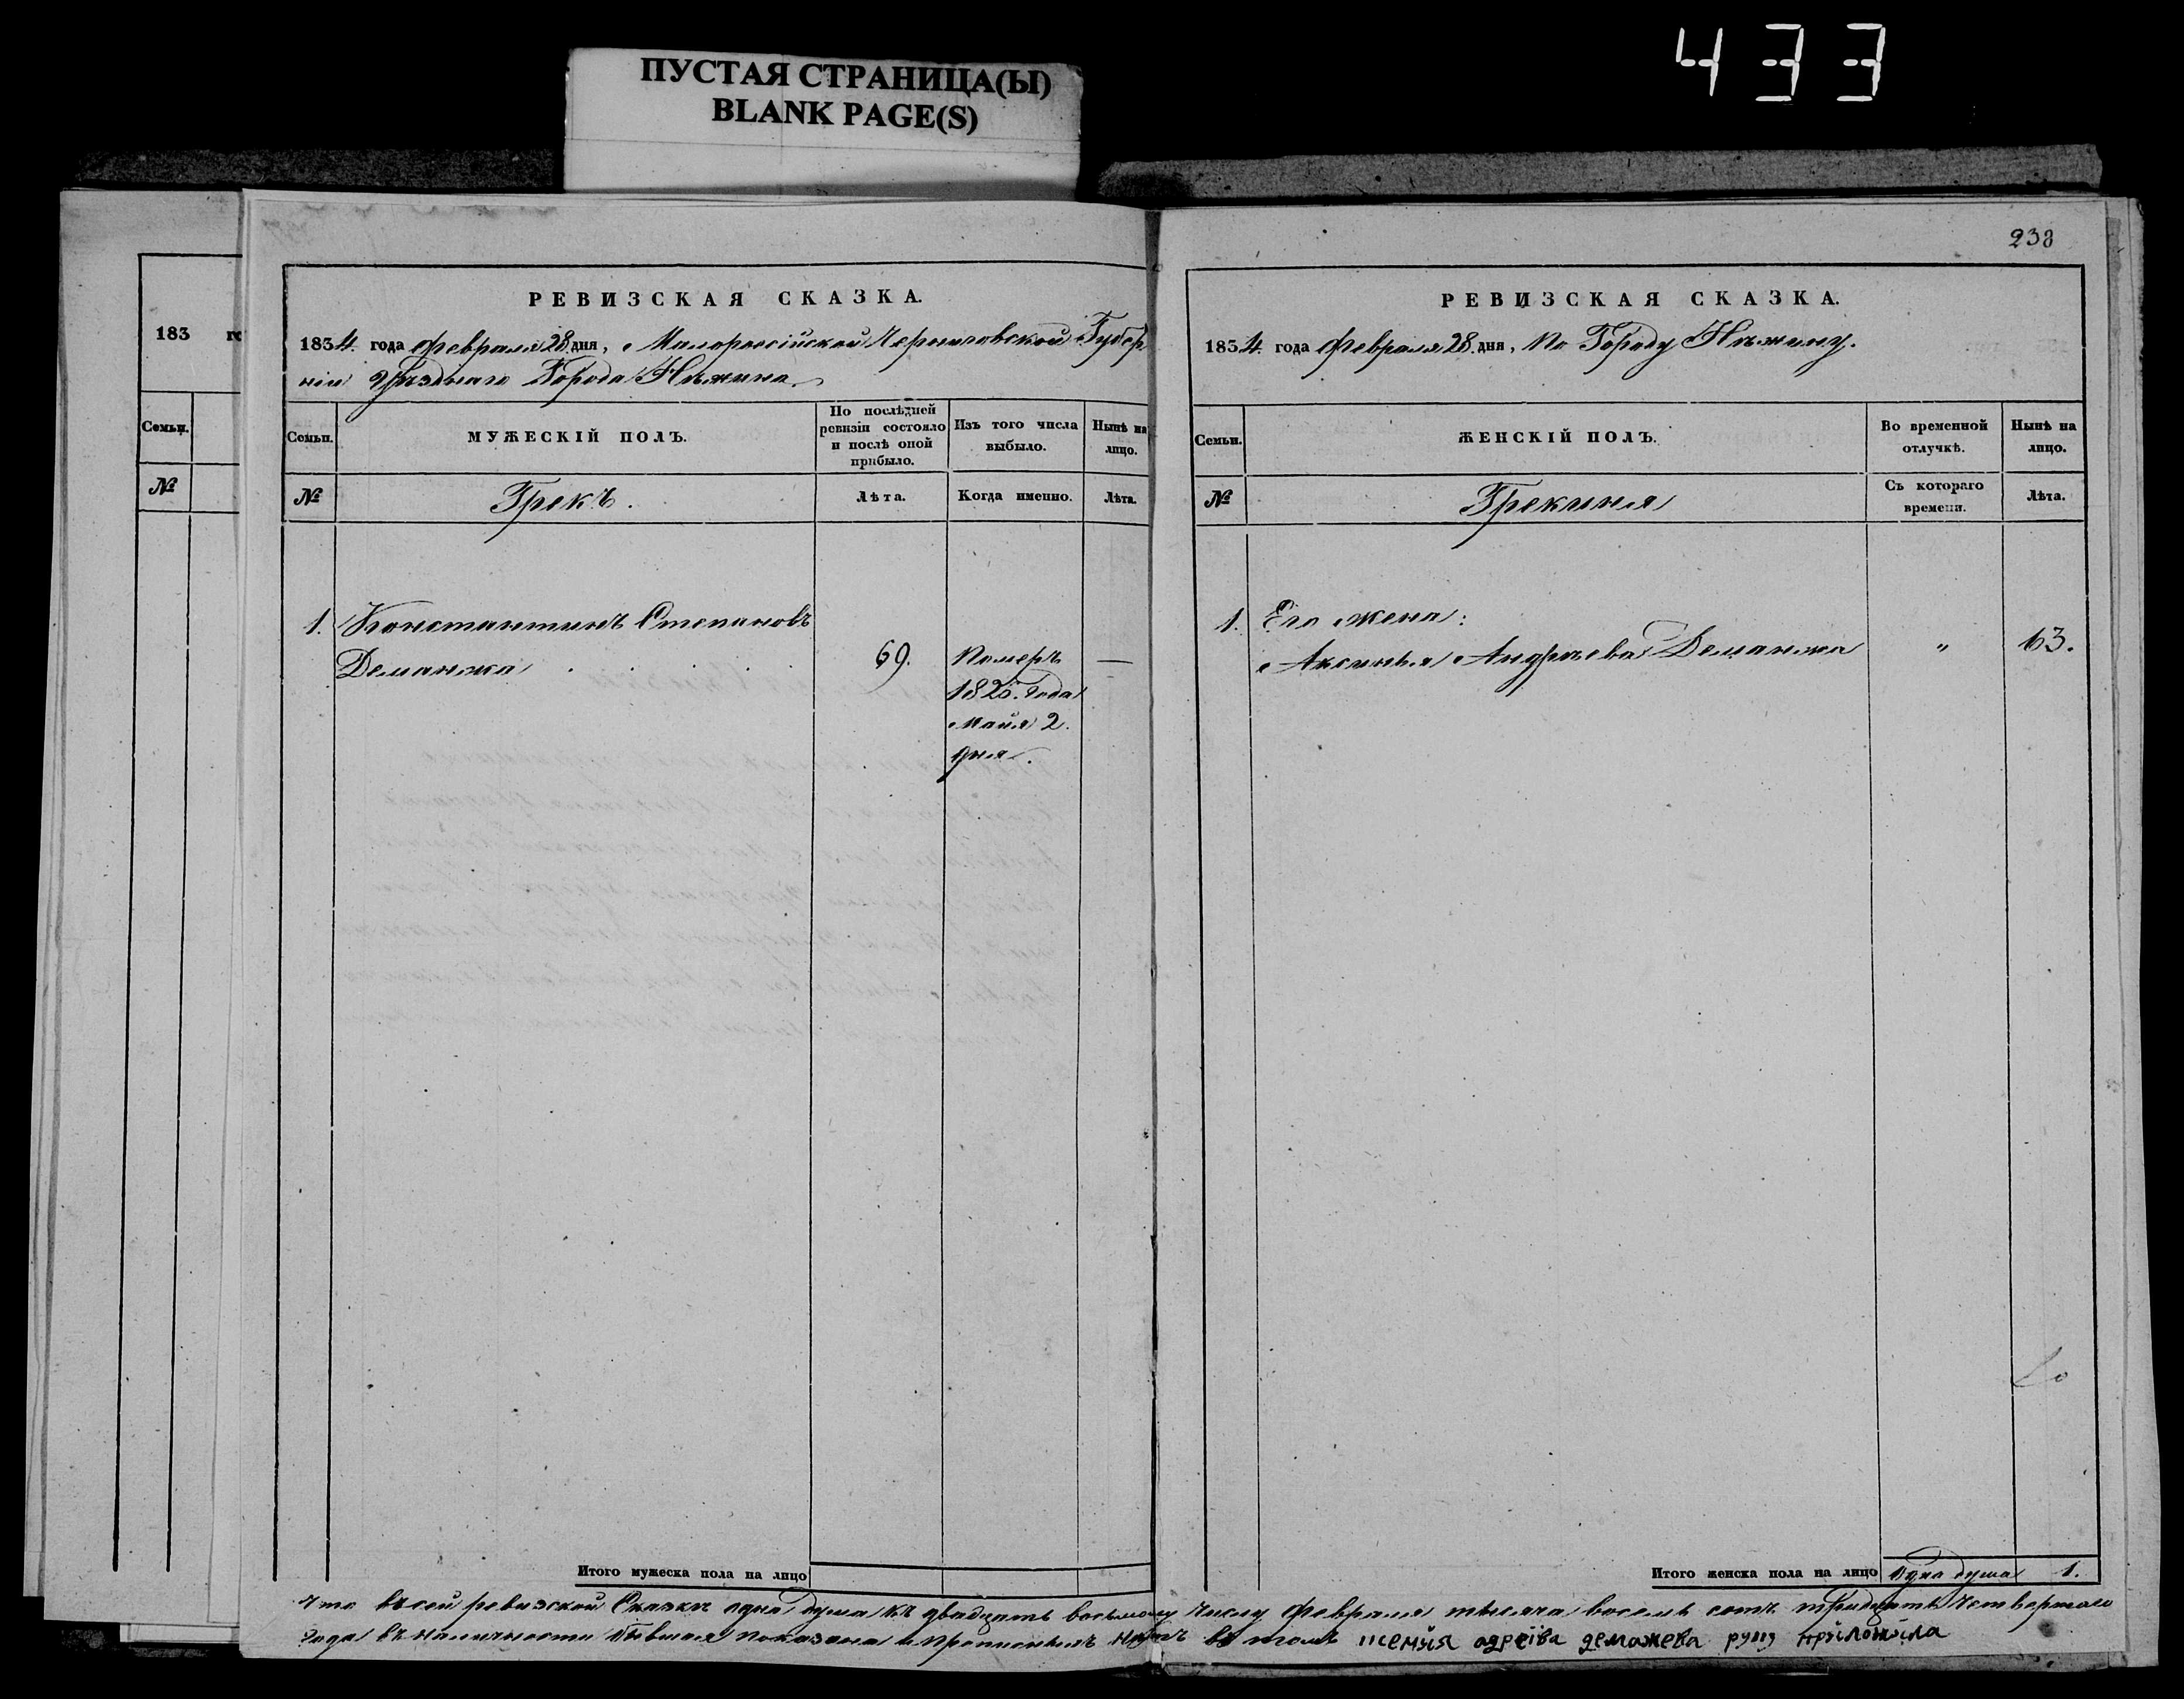 433
ПУСТАЯ СТРАНИЦА(Ы)
BLANK PAGE(S)
183 го
Семьи.
№
РЕВИЗСКАЯ СКАЗКА.
1834. года Февраля 28. дня, Малороссійской Черниговской Губер
ніи Уѣзднаго Города Нѣжина.
Семьи. МУЖЕСКІЙ ПОЛЪ. По послѣдней ревизіи состояло и послѣ оной прибыло. Изъ того числа выбыло. Нынѣ на лицо.
№ Грекъ. Лѣта. Когда именно. Лѣта.
1. Константинъ Степановъ
Деманжа 69. Померъ —
года
Майя 2.
дня.
Итого мужеска пола на лицо
238
РЕВИЗСКАЯ СКАЗКА.
1834. года Февраля 28. дня, По Городу Нѣжину.
Семьи. ЖЕНСКІЙ ПОЛЪ. Во временной отлучкѣ. Нынѣ на лицо.
№ Грекиня Съ котораго времени. Лѣта.
1. Его жена:
Аксинья Андрѣева Деманжа " 63.
Итого женска пола на лицо Одна душа 1.
Что въ сей ревизской Сказкѣ одна душа къ двадцать восьмому числу Февраля тысяча восемь сотъ тридцать четвертаго
года въ наличности бывшая показана и прописныхъ нѣтъ въ томъ адреіва демажева руку приложила